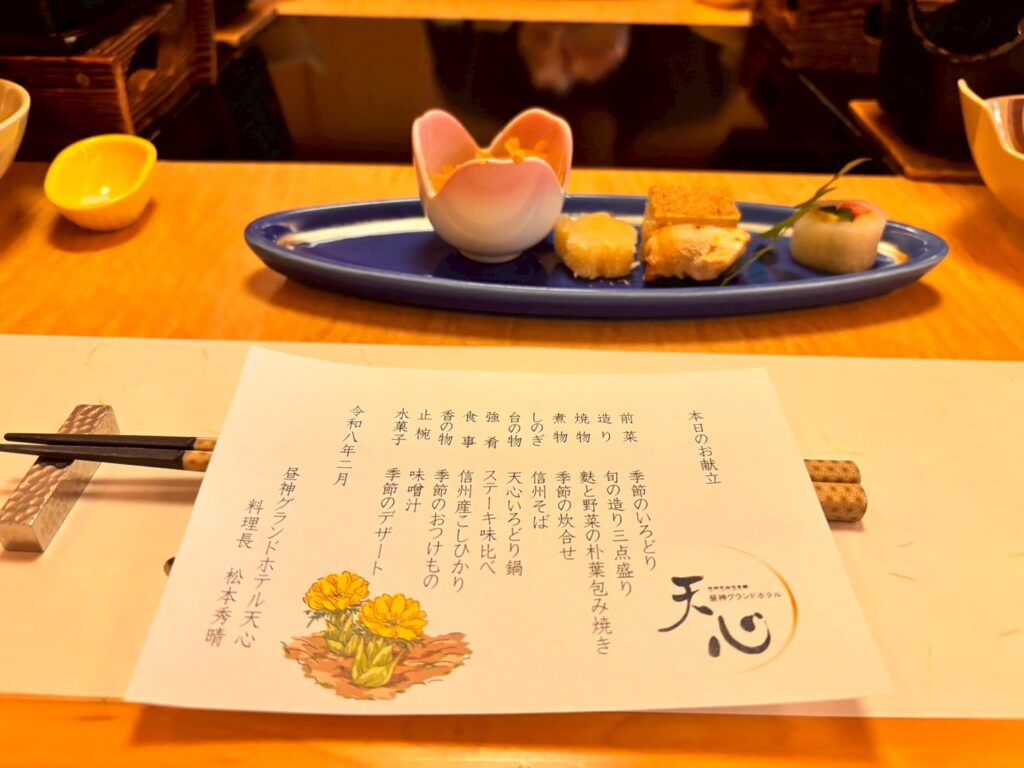 本日のお献立
前菜 季節のいろどり
造り 旬の造り三点盛り
焼物 麩と野菜の朴葉包み焼き
煮物 季節の炊合せ
しのぎ 信州そば
台の物 天心いろどり鍋
強肴 ステーキ味比べ
食事 信州産こしひかり
香の物 季節のおつけもの
止椀 味噌汁
水菓子 季節のデザート
令和八年二月
昼神グランドホテル天心
料理長 松本秀晴
昼神グランドホテル
天心